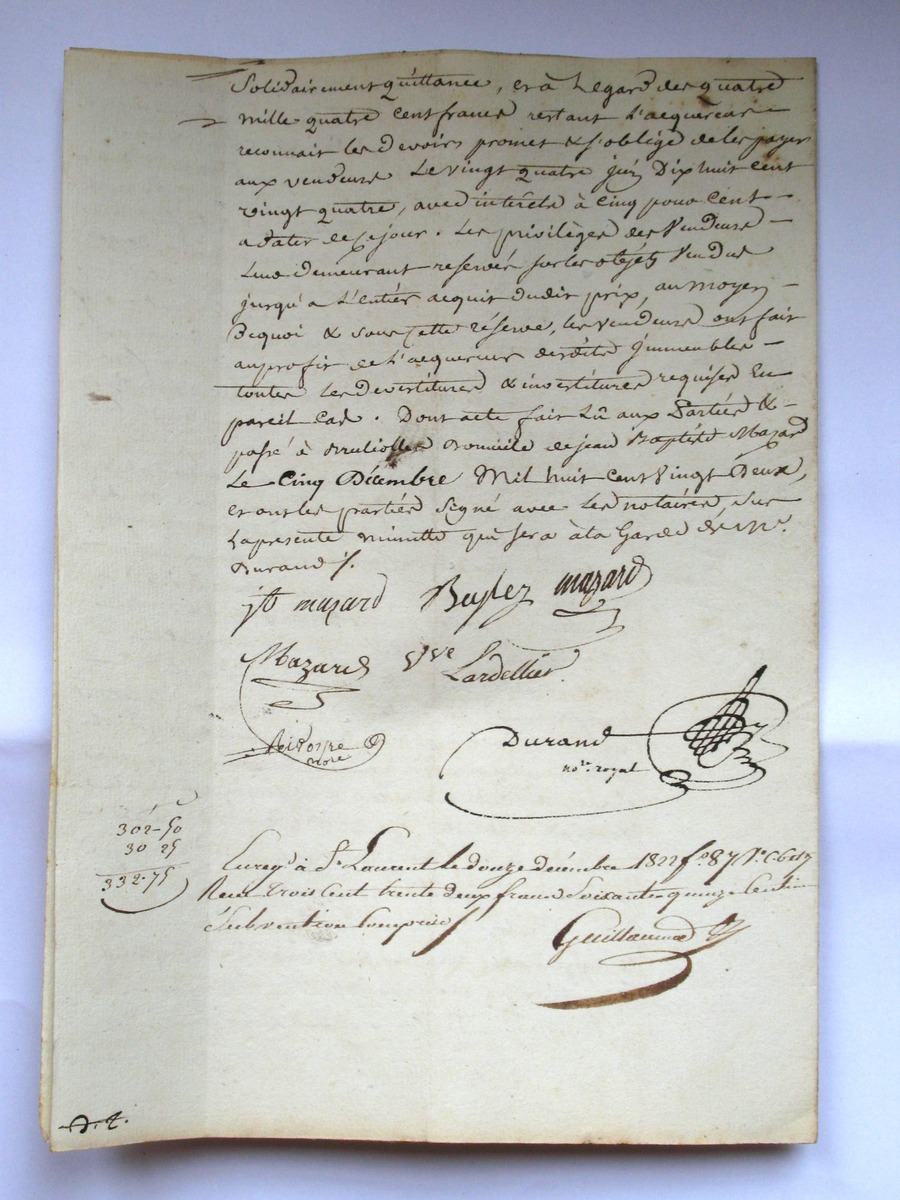 Solidairement quittance, et à l'egard des quatre
mille quatre cent francs restant l'acquereur
reconnait les devoirs promet & s'oblige de les payer
aux vendeurs le vingt quatre juin Dix huit cent
vingt quatre, avec intérêts à cinq pour cent
a dater de ce jour. Les privilèges des Vendeurs
leur demeurant reservés sur les objets Vendus
jusqu'a l'entier acquit dudit prix, au moyen
Dequoi & sous cette réserve, les vendeurs ont fait
au profit de l'acquereur desdits immeubles
toutes les devestitures & investitures requises En
pareil Cas. Dont acte fait Lû aux Parties &
passé à domicile de jean Baptiste Mazard
Le Cinq Décembre Mil huit cent Vingt Deux,
et ont les parties Signé avec les notaires, sur
la presente minutte qui sera à la Garde de Me.
Durand /.
jb mazard Baylez mazard
Mazard Vve Lardellier
Durand
nore
nore. royal
302-50
30 25
332-75
Enregé à St Laurent le douze decembre 1822 fo 87 Vo
Reçu trois cent trente deux francs soixante quinze Centimes
Subvention Comprise
Guillaumod